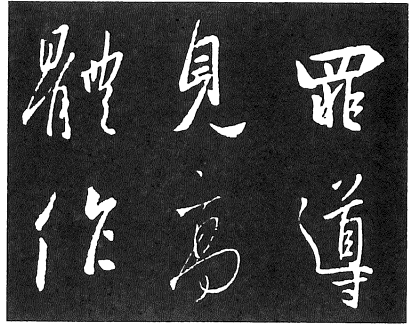 罪導
見高
體作